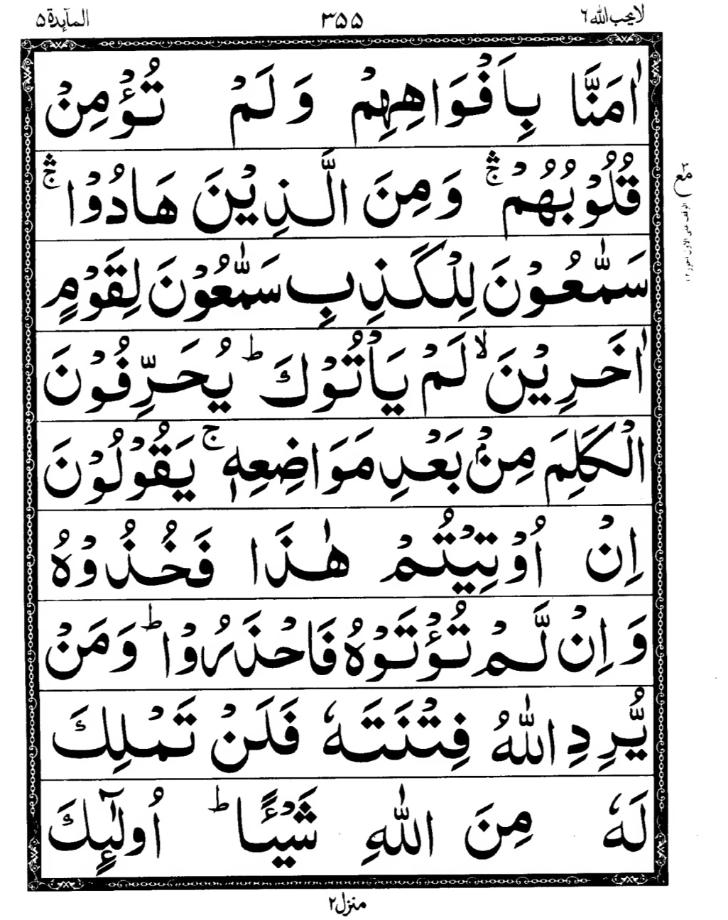 لايحب الله ٦ ٣٥٥ المآبدة ٥
اٰمَنَّا بِاَفْوَاهِهِمْ وَلَمْ تُؤْمِنْ
قُلُوْبُهُمْ ۛۚ وَمِنَ الَّذِيْنَ هَادُوْا ۛۚ
سَمّٰعُوْنَ لِلْكَذِبِ سَمّٰعُوْنَ لِقَوْمٍ
اٰخَرِيْنَ ۙ لَمْ يَاْتُوْكَ ؕ يُحَرِّفُوْنَ
الْكَلِمَ مِنْۢ بَعْدِ مَوَاضِعِهٖ ۚ يَقُوْلُوْنَ
اِنْ اُوْتِيْتُمْ هٰذَا فَخُذُوْهُ
وَاِنْ لَّمْ تُؤْتَوْهُ فَاحْذَرُوْا ؕ وَمَنْ
يُّرِدِ اللّٰهُ فِتْنَتَهٗ فَلَنْ تَمْلِكَ
لَهٗ مِنَ اللّٰهِ شَيْـًٔا ؕ اُولٰٓئِكَ
منزل ٢